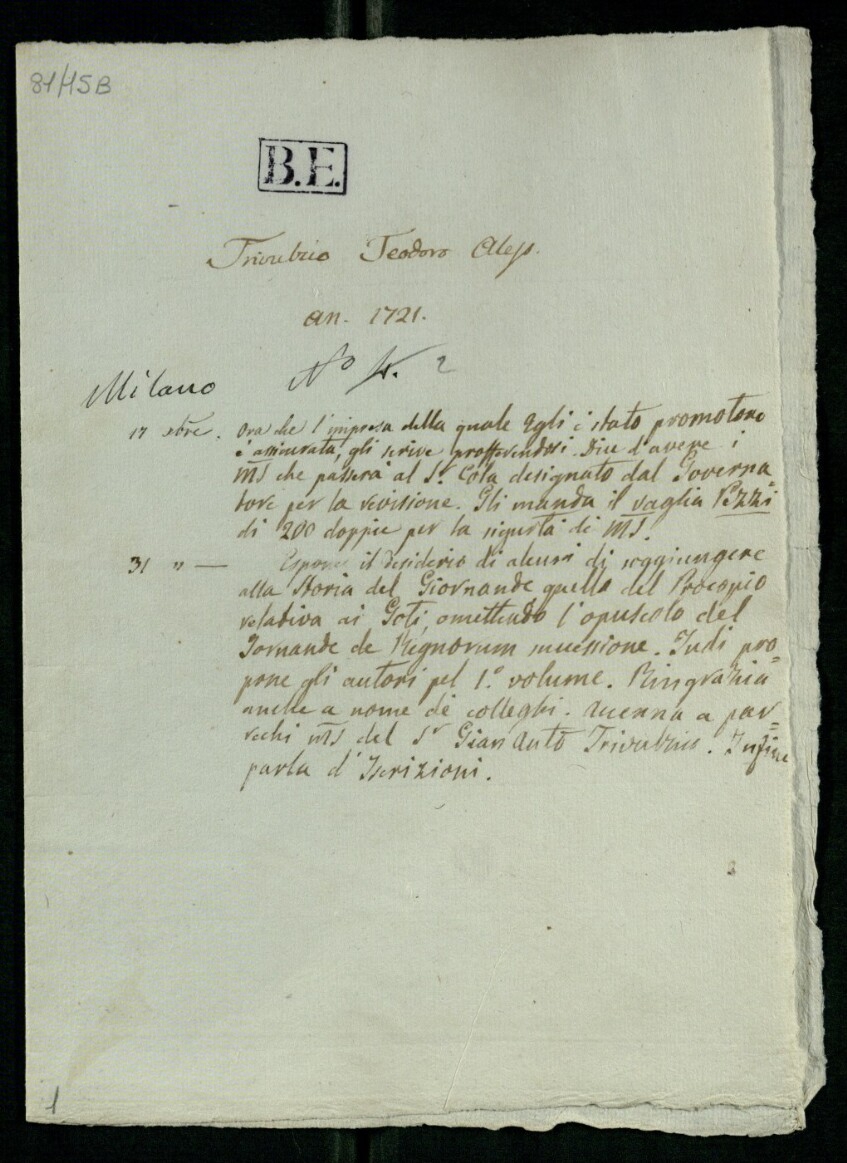 81/15B
B.E.
Trivulzio Teodoro Aless.
an. 1721.
Milano N.o 4. 2
17 xbre. Ora che l'impresa della quale Egli è stato promotore
è assicurata, gli scrive profferendosi. Dice d'avere i
MS che passerà al Sr. Cola designato dal Governa=
tore per la revisione. Gli manda il vaglia Pezzi
di 200 doppie per la sigurtà di MS.
31 " — Espone il desiderio di alcuni di soggiungere
alla Storia del Giornande quella del Procopio
relativa ai Goti, omettendo l'opuscolo del
Jornande de Regnorum successione. Indi pro=
pone gli autori pel 1.o volume. Ringrazia
anche a nome de' colleghi. Accenna a par=
recchi MS del Sr Gian Anto Trivulzio. Infine
parla d'Iscrizioni.
1